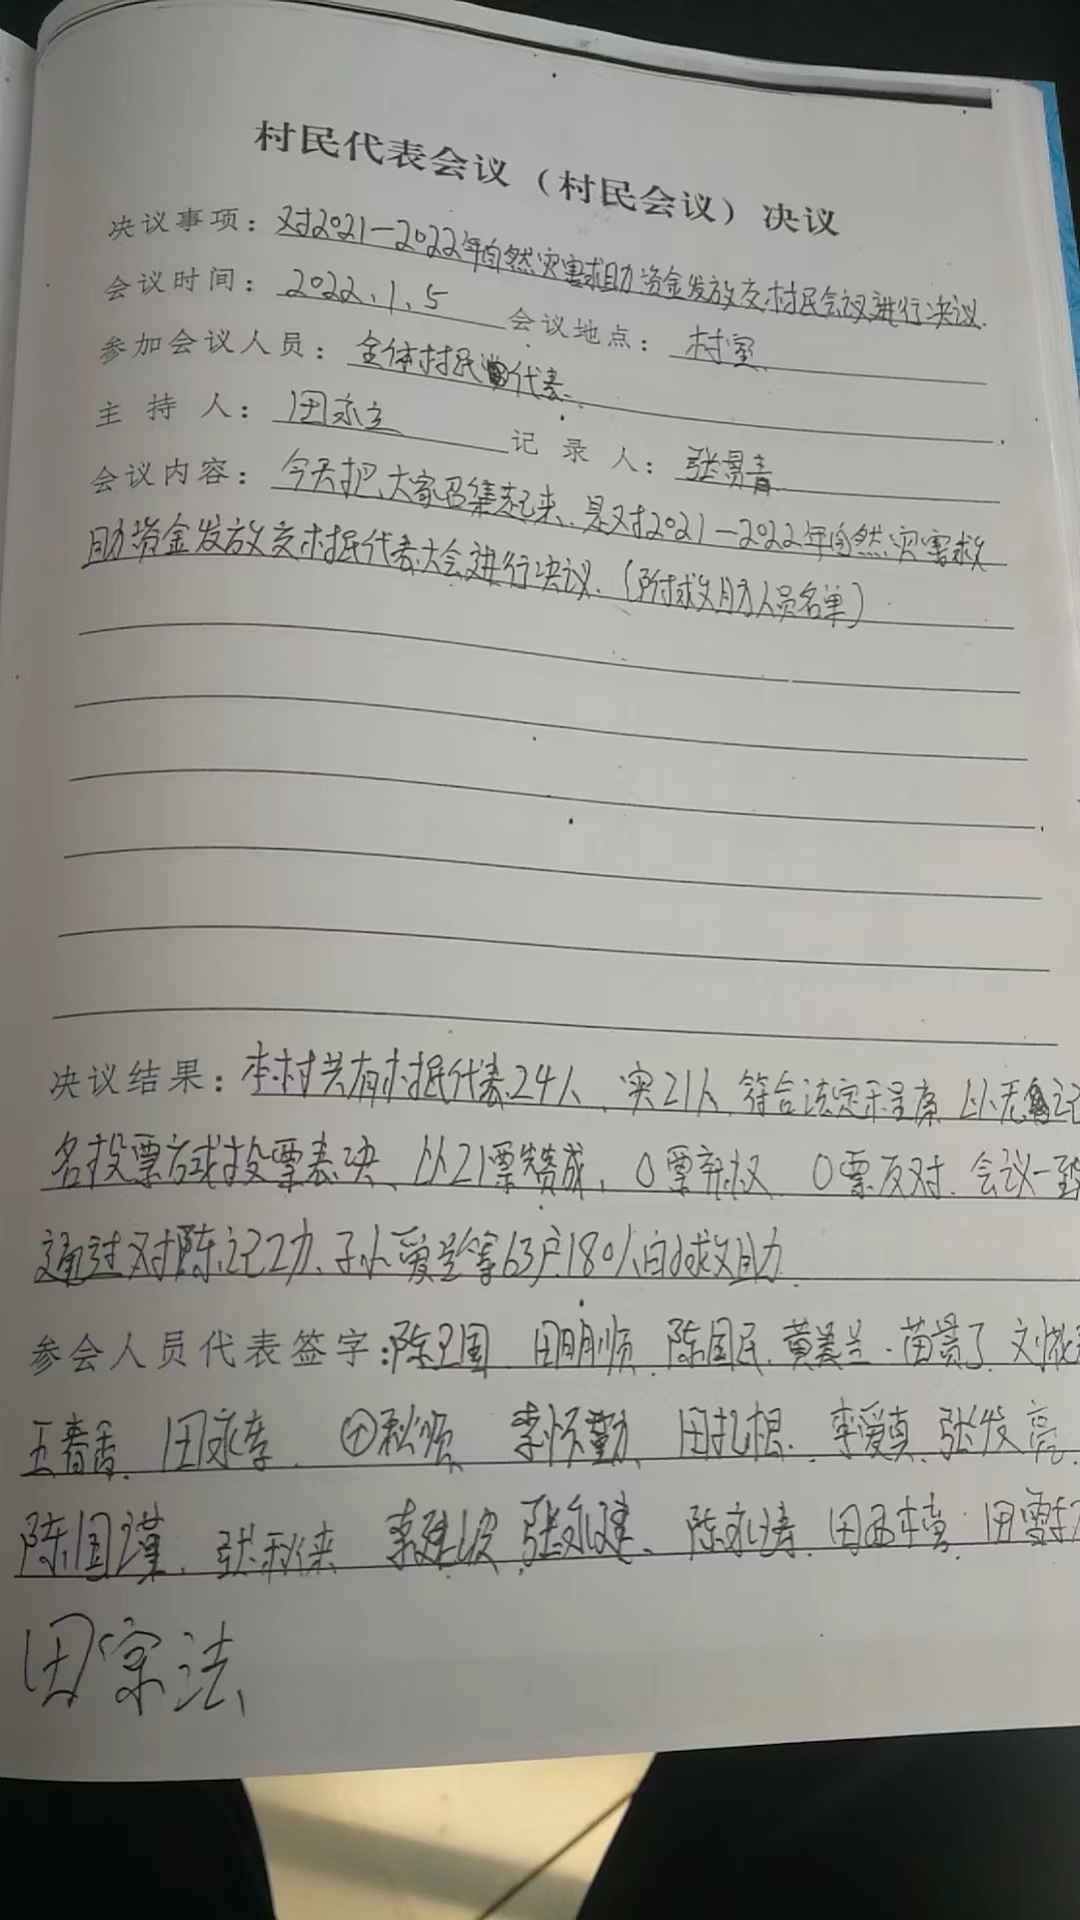 村民代表会议（村民会议）决议
决议事项：对2021—2022年自然灾害救助资金发放交村民会议进行决议.
会议时间：2022.1.5 会议地点：村室.
参加会议人员：全体村民代表.
主持人：田永立 记录人：张易青
会议内容：今天把大家召集起来.是对2021—2022年自然灾害救
助资金发放交村民代表大会进行决议.（附救助人员名单）
决议结果：本村共有村民代表24人、实21人.符合法定程序 以无记
名投票方式投票表决、以21票赞成，0票弃权 0票反对.会议一致
通过对陈记功、爱兰等63户180人的救助.
参会人员代表签字：陈卫国 田明顺 陈国民.黄美兰.苗景了
王春香.田永李.田秋顺 李怀勤 田扎根.李爱真.张发亮.
陈国谨.张秋来 李建波 张永建、陈永涛.田西 田雪
田宗法